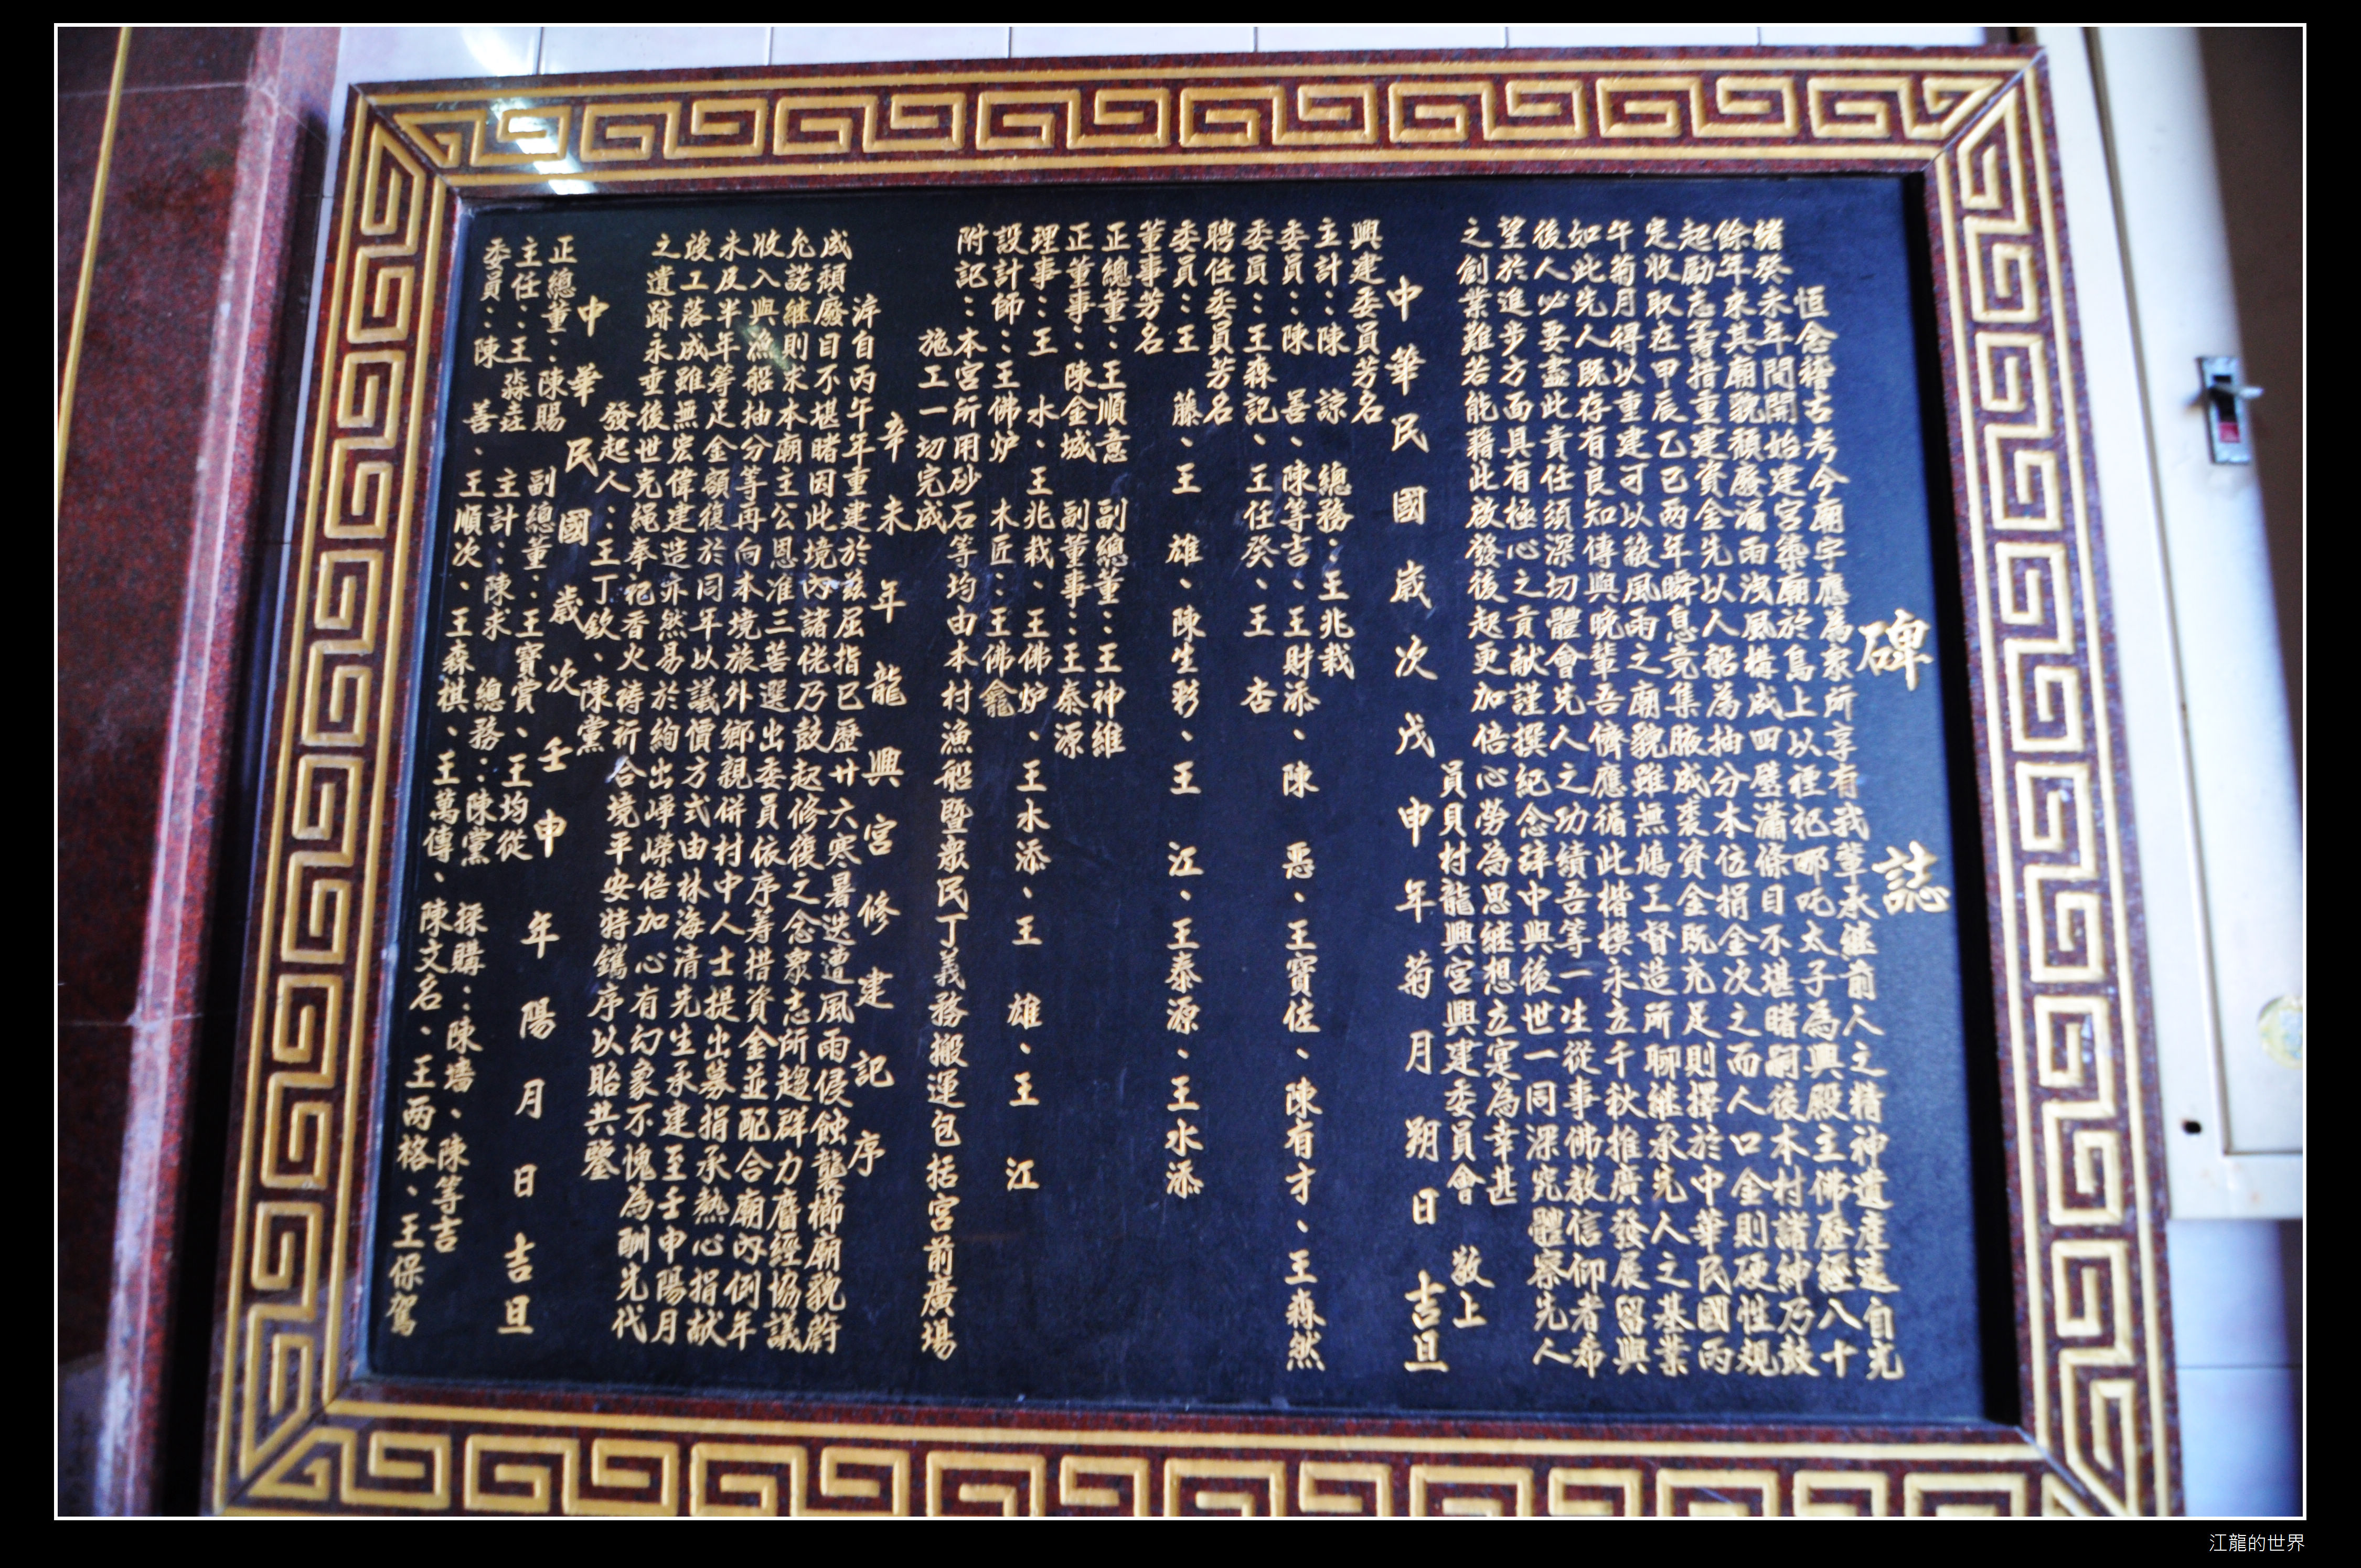 碑誌
恒念稽古考今廟宇應為家所享有我輩承継前人之精神遺産遠自光
緒癸未年間開始建宮築廟於島上以禋祀哪吒太子為興殿主佛歷經八十
餘年來其廟貌頹廢漏雨洩風構成四壁瀟條目不堪睹嗣後本村諸紳乃鼓
起勵志籌措重建資金先以人船為抽分本位捐金次之而人口金則硬性規
定收取在甲辰乙巳兩年瞬息竟集腋成裘資金既充足則擇於中華民國丙
午菊月得以重建可以蔽風雨之廟貌雖無鳩工督造所聊継承先人之基業
如此先人既存有良知傳與晚輩吾儕應循此楷模永立千秋推廣發展留興
後人必要盡此責任須深切體會先人之功績吾等一生從事佛教信仰者希
望於進步方面具有極心之貢献謹撰紀念辞中與後世一同深究體察先人
之創業難若能藉此啟發後起更加倍心勞為思継想立寔為幸甚
員貝村龍興宮興建委員會 敬上
中華民國歲次戊申年菊月朔日吉旦
興建委員芳名
主計：陳諒 總務：王兆栽
委員：陳善、陳等吉、王財添、陳惡、王寶佐、陳有才、王森然
委員：王森記、王任癸、王杏
聘任委員芳名
委員：王藤、王雄、陳生彩、王江、王泰源、王水添
董事芳名
正總董：王順意 副總董：王神維
正董事：陳金城 副董事：王泰源
理事：王水、王兆栽、王佛炉、王水添、王雄、王江
設計師：王佛炉 木匠：王佛龕
附記：本宮所用砂石等均由本村漁船暨眾民丁義務搬運包括宮前廣場
施工一切完成
辛未年龍興宮修建記序
溯自丙午年重建於茲屈指已歷廿六寒暑迭遭風雨侵蝕龔櫛廟貌蔚
成頹廢目不堪睹因此境內諸佬乃鼓起修復之念眾志所趨群力曆經協議
允諾継則求本廟主公恩准三菩選出委員依序籌措資金並配合廟內例年
收入與漁船抽分等再向本境旅外鄉親併村中人士提出募捐承熱心捐献
未及半年籌足金額復於同年以議價方式由林海清先生承建至壬申陽月
竣工落成雖無宏偉建造亦然易於絢出崢嶸倍加心有幻象不愧為酬先代
之遺跡永垂後世克繩奉祀香火禱祈合境平安特鐫序以貽共鑒
發起人：王丁欽、陳黨
中華民國歲次壬申年陽月日吉旦
正總董：陳賜 副總董：王寶賞、王均從
主任：王淼垚 主計：陳求 總務：陳黨 採購：陳墻、陳等吉
委員：陳善、王順次、王森棋、王萬傳、陳文名、王兩格、王保駕
江龍的世界